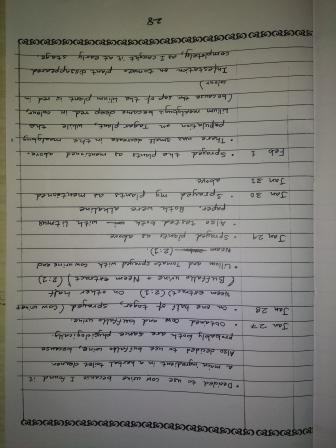 • Decided to use cow urine because I found it
a main ingredient in a herbal toilet cleaner
Also decided to use buffalo urine, because,
probably both are same physiologically
Jan 27 obtained cow and buffalo urine
Jan 28 • on one half of tagar, sprayed (cow urine +
Neem extract) (2:2) On other half
(Buffalo's urine + Neem extract) (2:2)
• Lilium and tomato sprayed with cow urine and
Neem (2:2)
Jan 29 Sprayed plants as above
• Also tested both with litmus
paper. Both were alkaline
Jan 30 Sprayed my plants as mentioned
Jan 31 above
Feb 1 • Sprayed the plants as mentioned above.
• There was small decrease in the mealybug
population on Tagar plant, while the
Lilium mealybugs became deep red in colour,
(because the sap of the lilium plant is red in
colour)
Infestation on tomato plant disappeared
completely, as I caught it at early stage.
28